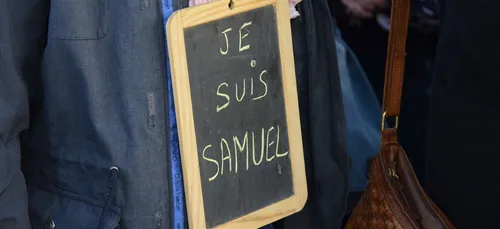 JE
SUiS
SAMUEL